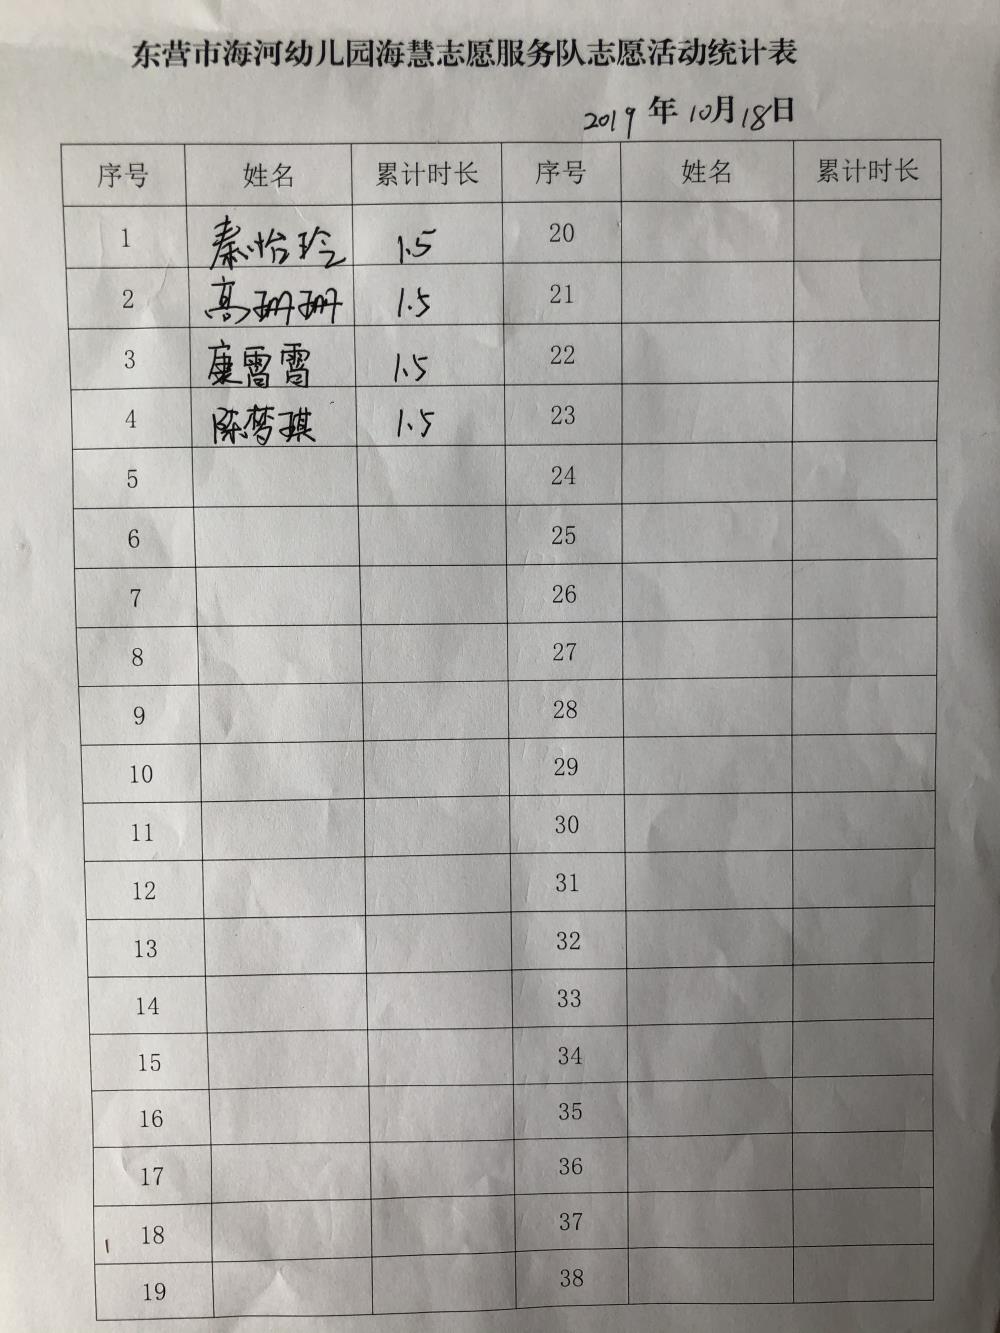 东营市海河幼儿园海慧志愿服务队志愿活动统计表
2019 年 10月 18日
序号 姓名 累计时长 序号 姓名 累计时长
1 秦怡玲 1.5 20
2 高珊珊 1.5 21
3 康霄霄 1.5 22
4 陈梦琪 1.5 23
5 24
6 25
7 26
8 27
9 28
10 29
11 30
12 31
13 32
14 33
15 34
16 35
17 36
18 37
19 38